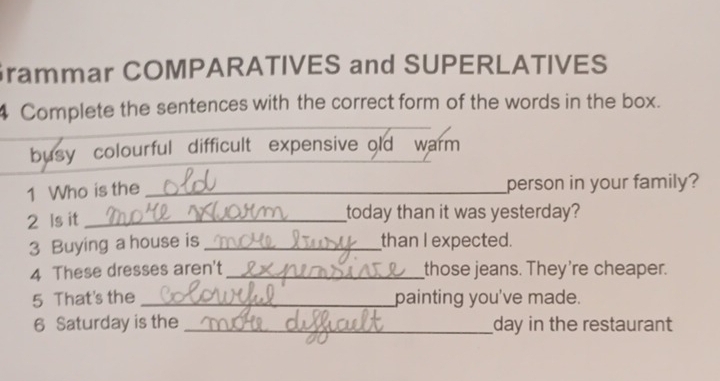 Grammar COMPARATIVES and SUPERLATIVES
4 Complete the sentences with the correct form of the words in the box.
busy colourful difficult expensive old warm
1 Who is the old person in your family?
2 Is it more warm today than it was yesterday?
3 Buying a house is more busy than I expected.
4 These dresses aren't expensive those jeans. They're cheaper.
5 That's the colourful painting you've made.
6 Saturday is the more difficult day in the restaurant